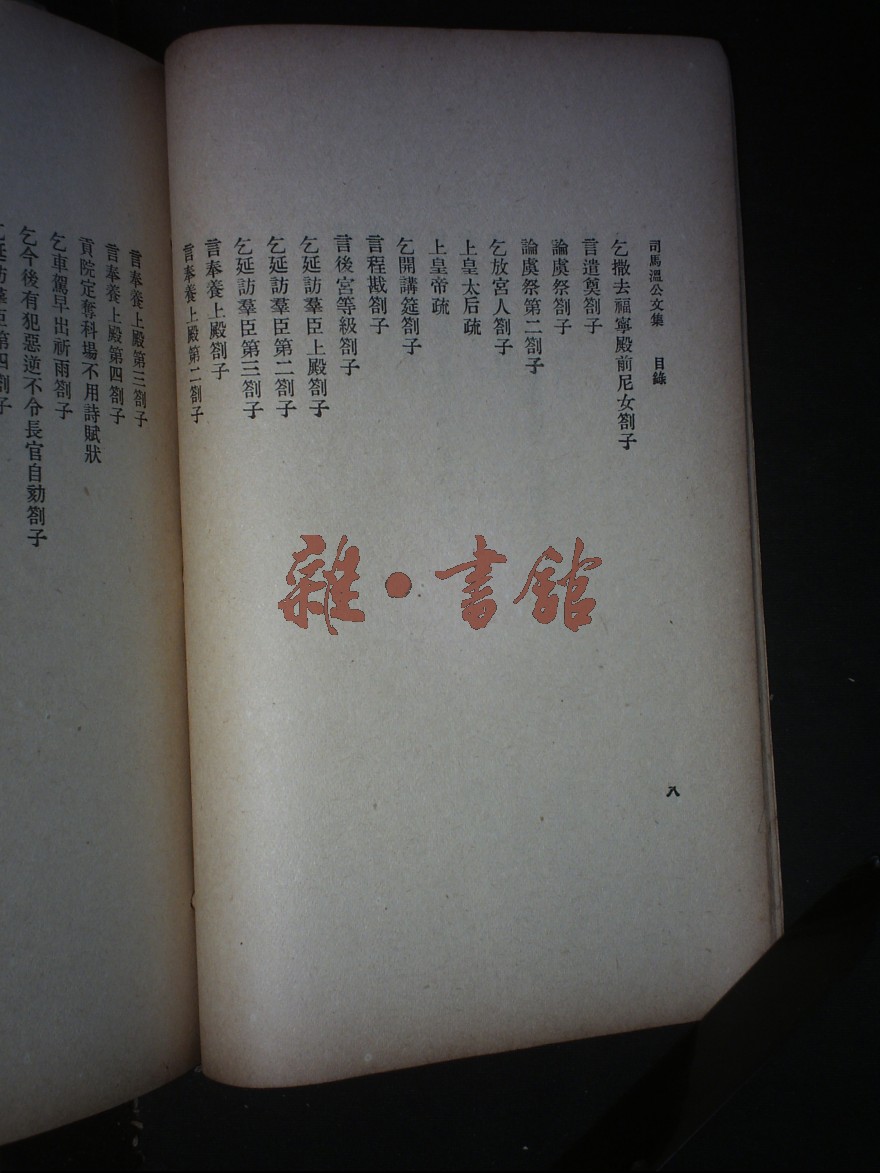 司馬溫公文集 目錄
乞撤去福寧殿前尼女劄子
言遣奠劄子
論虞祭劄子
論虞祭第二劄子
乞放宮人劄子
上皇太后疏
上皇帝疏
乞開講筵劄子
言程戡劄子
言後宮等級劄子
乞延訪羣臣上殿劄子
乞延訪羣臣第二劄子
乞延訪羣臣第三劄子
言奉養上殿劄子
言奉養上殿第二劄子
八
言奉養上殿第三劄子
言奉養上殿第四劄子
貢院定奪科場不用詩賦狀
乞車駕早出祈雨劄子
乞今後有犯惡逆不令長官自劾劄子
延訪羣臣第四劄子
雜·書館